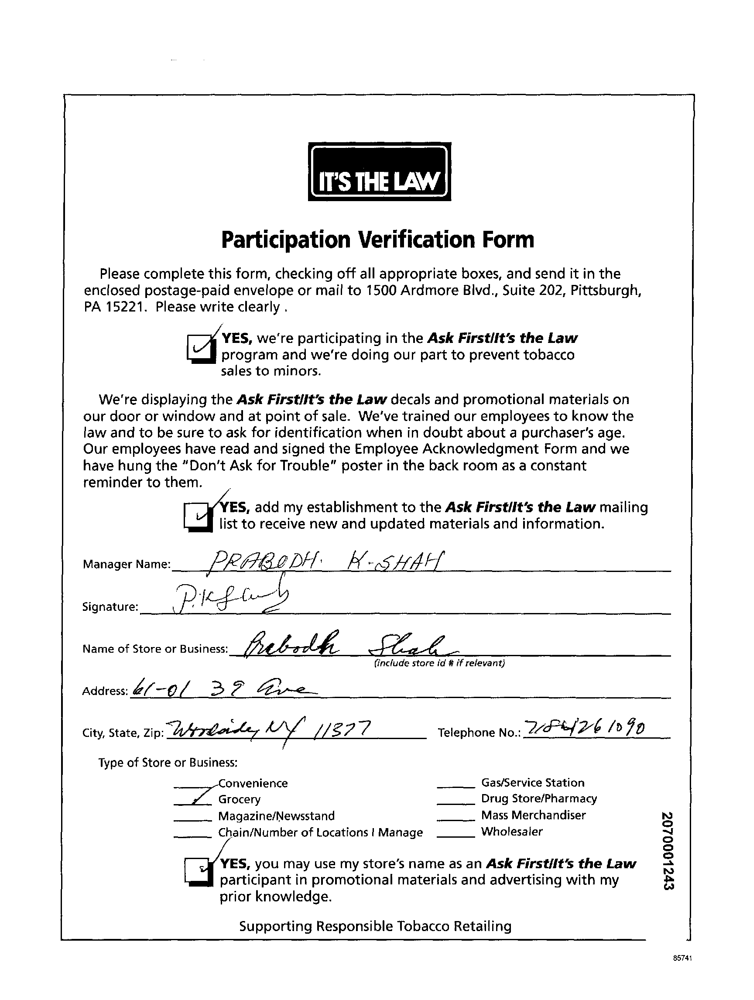 IT'S THE LAW
Participation Verification Form
Please complete this form, checking off all appropriate boxes, and send it in the
enclosed postage-paid envelope or mail to 1500 Ardmore Blvd., Suite 202, Pittsburgh,
PA 15221. Please write clearly .
YES, we're participating in the Ask First/It's the Law
program and we're doing our part to prevent tobacco
sales to minors.
We're displaying the Ask First/It's the Law decals and promotional materials on
our door or window and at point of sale. We've trained our employees to know the
law and to be sure to ask for identification when in doubt about a purchaser's age.
Our employees have read and signed the Employee Acknowledgment Form and we
have hung the "Don't Ask for Trouble" poster in the back room as a constant
reminder to them.
YES, add my establishment to the Ask First/It's the Law mailing
list to receive new and updated materials and information.
Manager Name: PRABODH. K-SHAH
Signature:
Name of Store or Business: Prabodh Shah
(include store id # if relevant)
Address: 61-01 39 Ave
City, State, Zip: Woodside, NY 11377 Telephone No.: 7184261090
Type of Store or Business:
Convenience Gas/Service Station
Grocery Drug Store/Pharmacy
Magazine/Newsstand Mass Merchandiser
Chain/Number of Locations I Manage Wholesaler
YES, you may use my store's name as an Ask First/It's the Law
participant in promotional materials and advertising with my
prior knowledge.
Supporting Responsible Tobacco Retailing
2070001243
85741